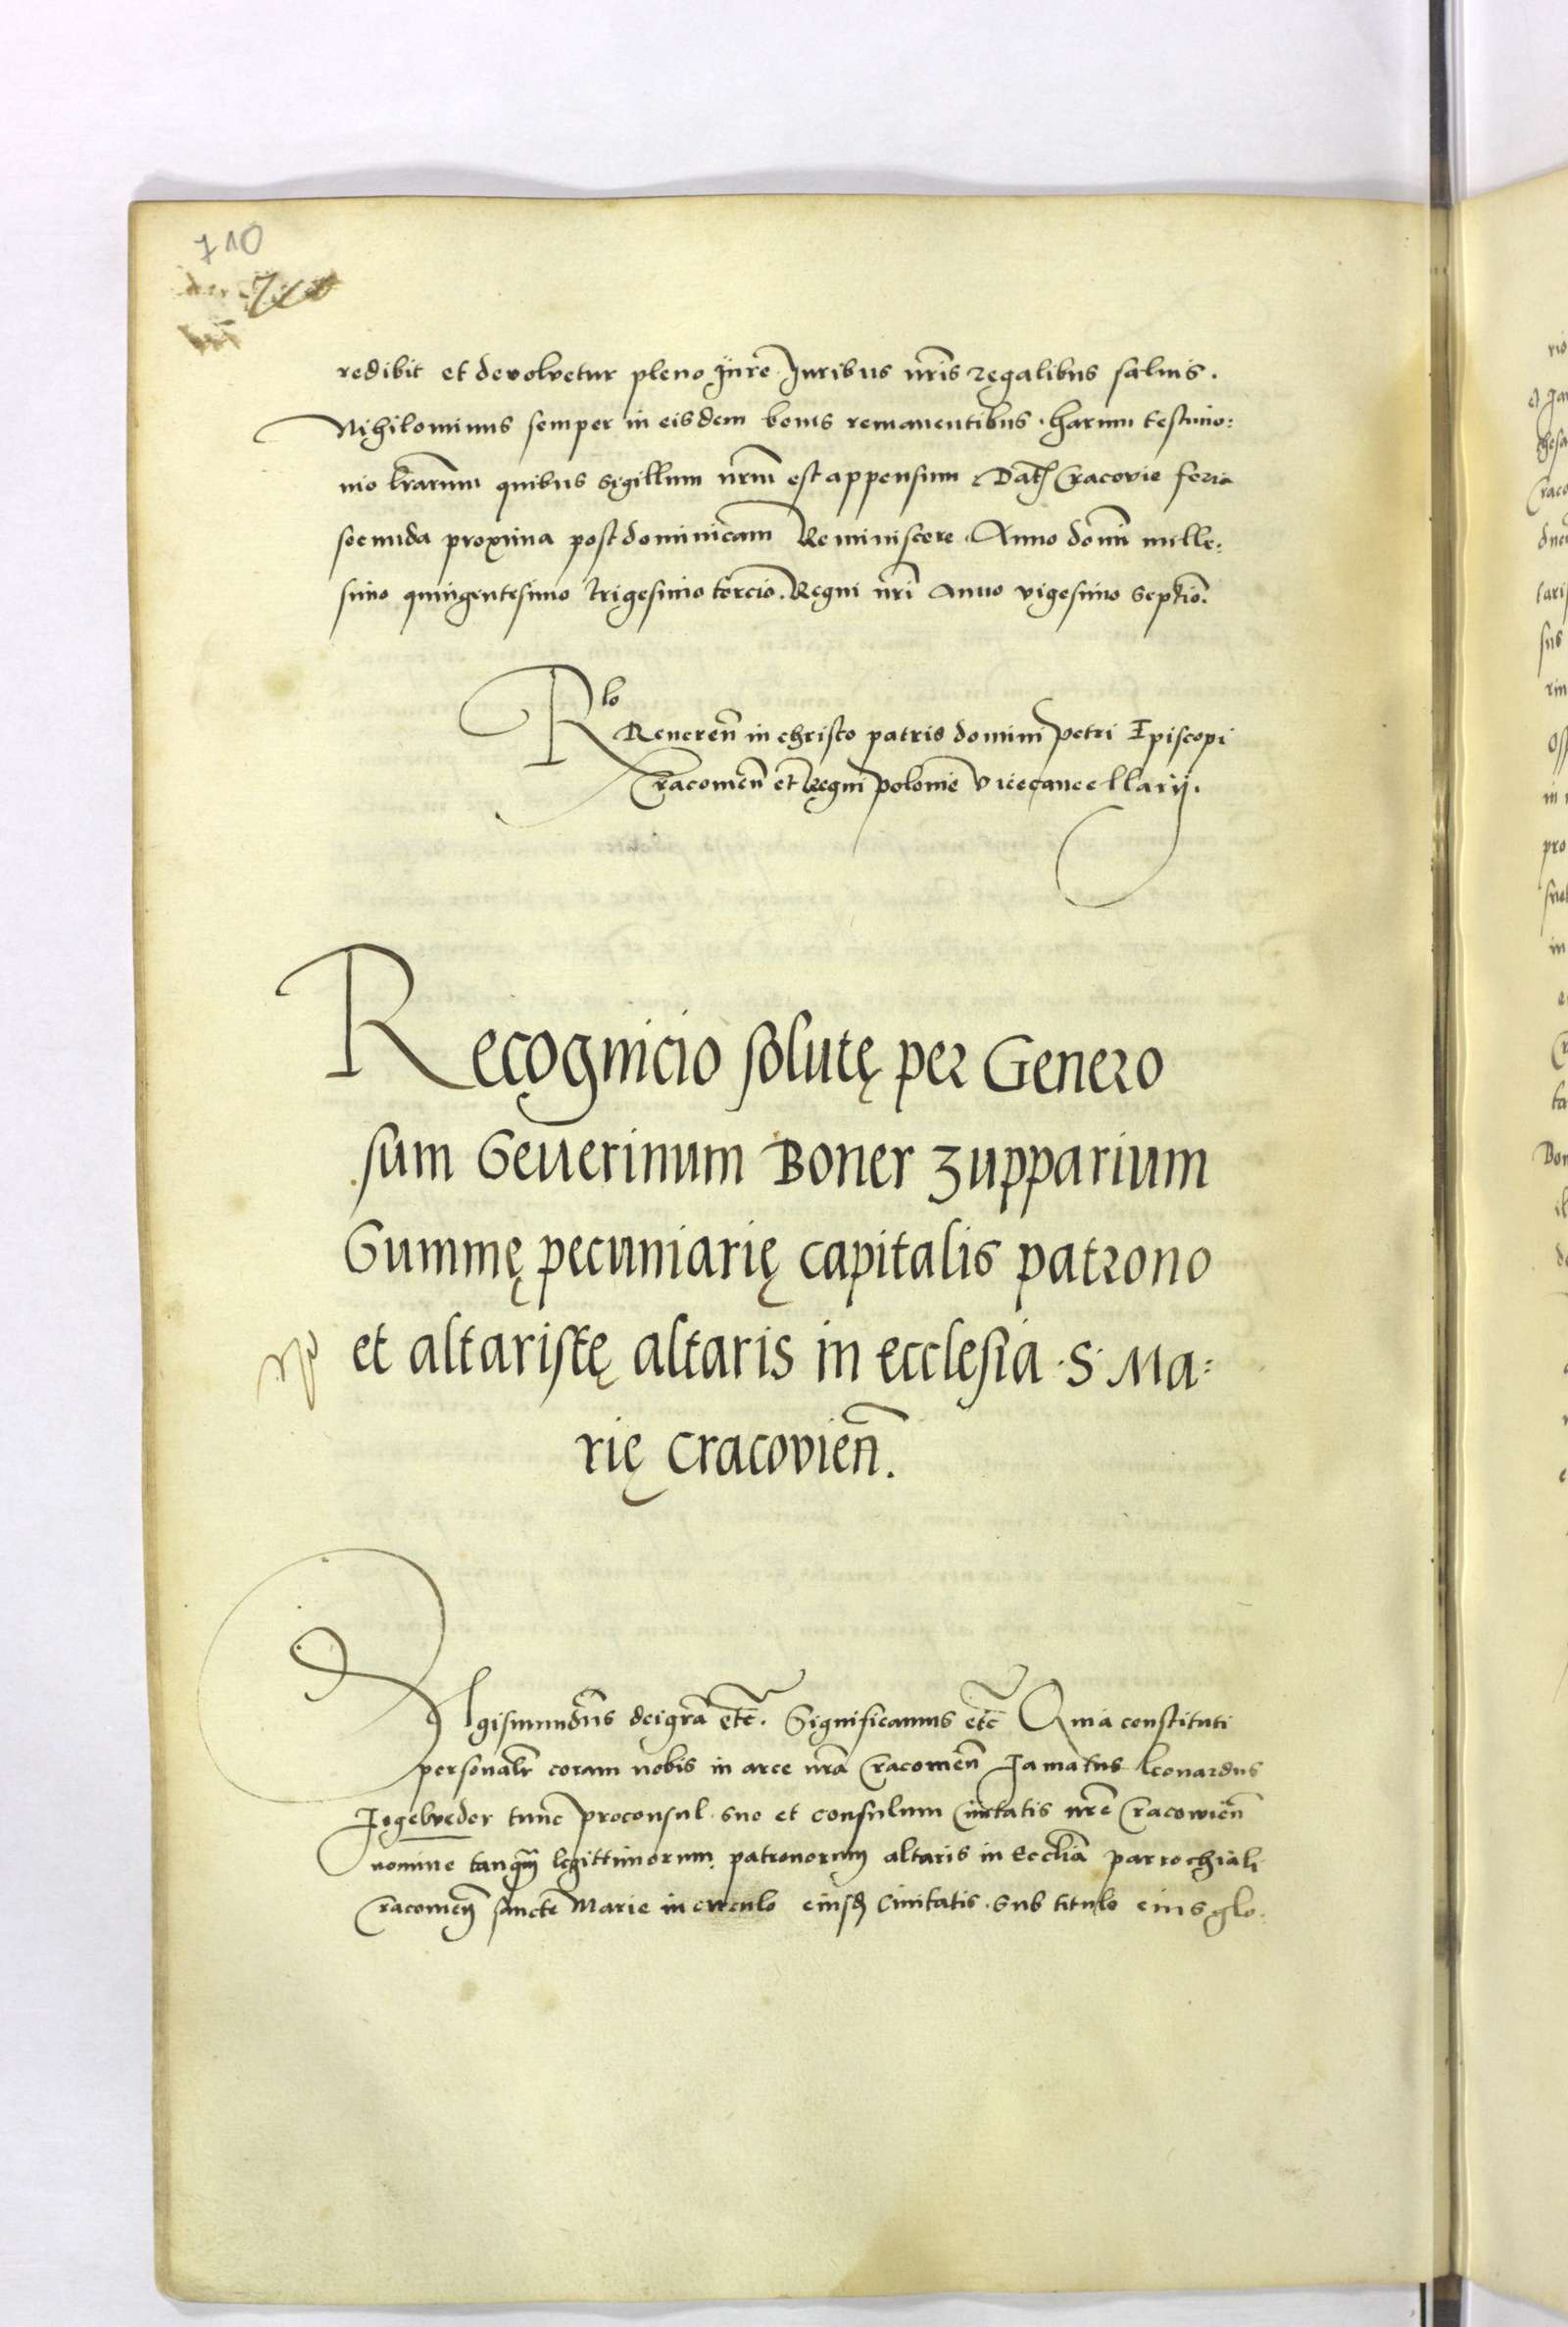 710
redibit et devolvetur pleno Jure Juribus nr̃is regalibus saluis.
Nihilominus semper in eisdem bonis remanentibus. harum testimo:
nio lr̃arum quibus sigillum nr̃m est appensum Dat̃ Cracovie feria
secunda proxima post dominicam Reminiscere. Anno domĩ mille:
simo quingentesimo trigesimo tercio. Regni nr̃i Anno vigesimo septĩo.
Rlo
Reueren̄ in christo patris domini petri Episcopi
Cracouien̄ et Regni polonie vicecancellarij.
Recognicio solutę per Genero
sum Seuerinum Boner zupparium
Summę pecuniarię capitalis patrono
et altaristę altaris in ecclesia S. Ma:
rię Cracovien̄.
Sigismundus dei gr̃a etc̃. Significamus etc̃ Quia constituti
personalr̃ coram nobis in arce nr̃a Cracouien̄ famatus Leonardus
Fogelveder tunc proconsul. suo et consulum Ciuitatis nr̃e Cracowien̄
nomine tanq̃m legittimorum patronorum altaris in Ecclĩa parrochiali
Cracouien̄ sancte Marie in circulo eiusd̃ Ciuitatis. sub titulo eius glo: